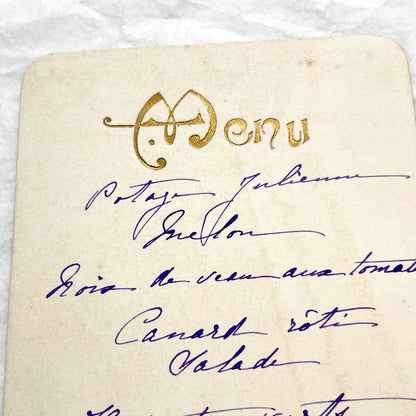 Menu
Potage Julienne
Melon
Noix de veau aux tomat
Canard rôti
Salade